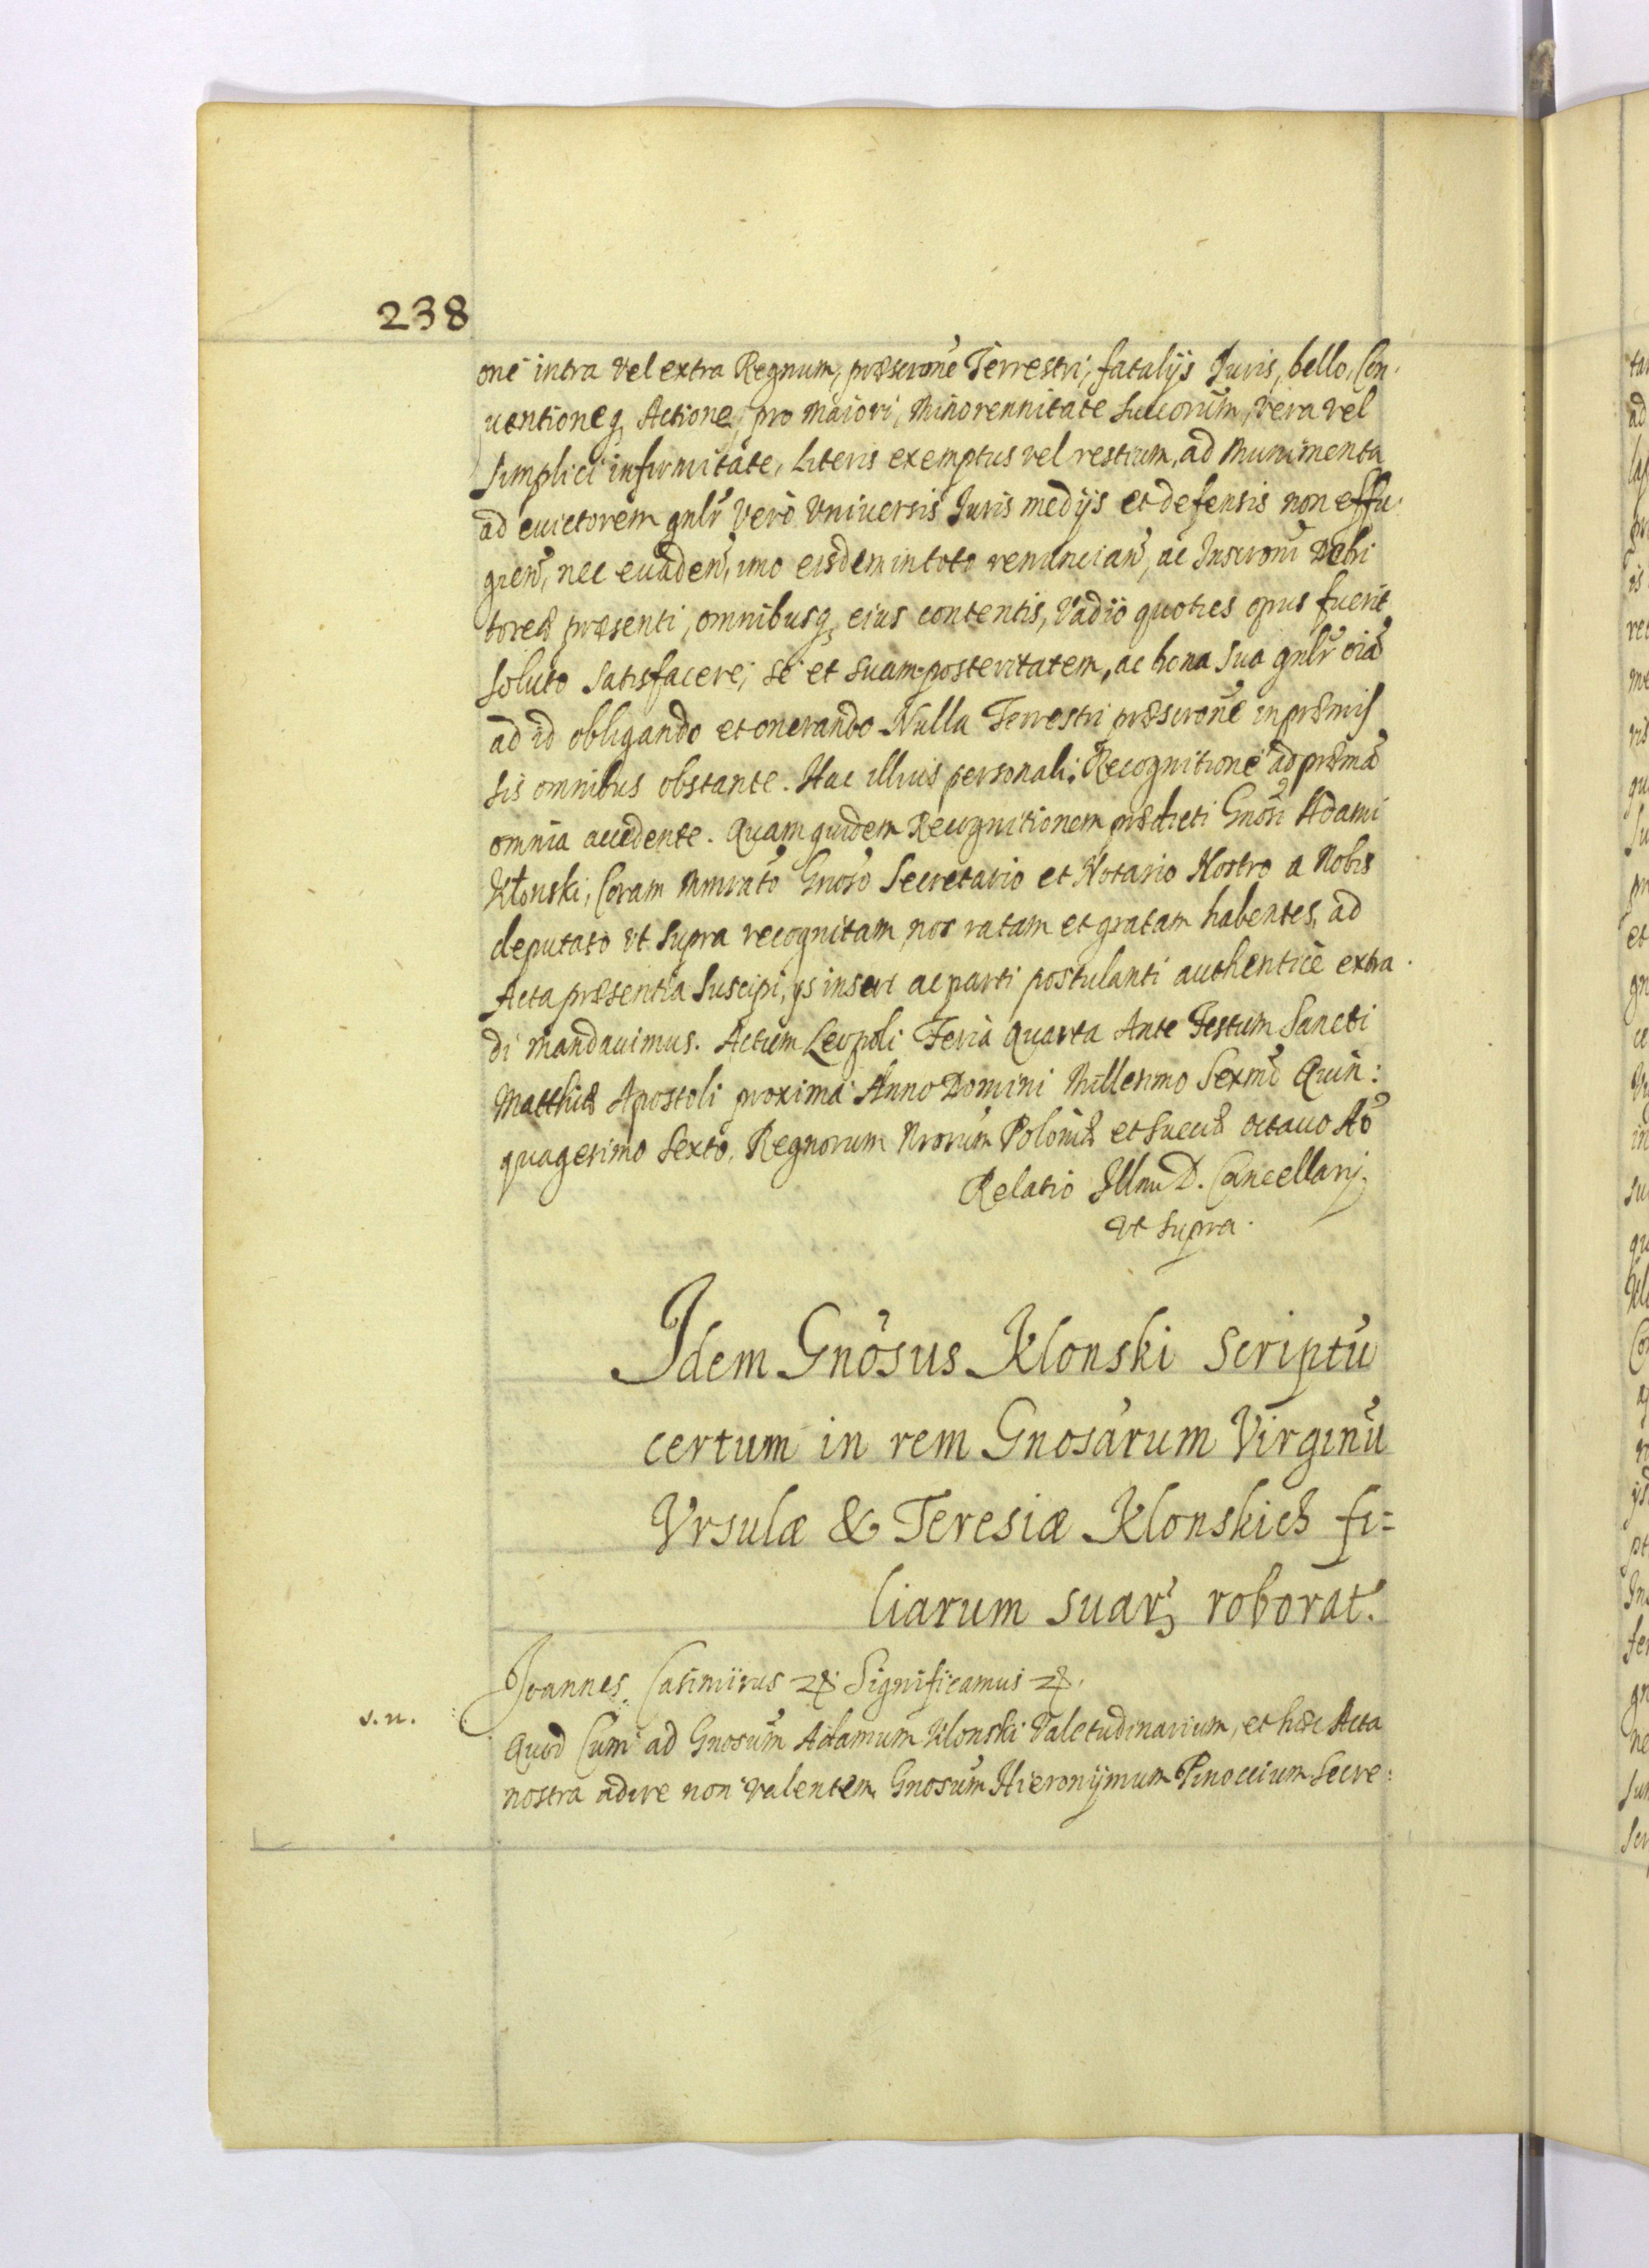 238
one intra vel extra Regnum, præscrõne Terrestri, fatalijs Juris, bello, Con-
uentioneq, Actione, pro maiori, Minorennitate succorũm, vera vel
simplici infirmitate, Literis exemptus vel restium, ad Munimenta
ad euictorem gnlr̃ verò Vniuersis Juris medijs et defensis non effu-
gien̄, nec euaden̄, imo eisdem in toto renuncian̄, ac Inscrõni Debi
toreæ præsenti, omnibusq, eius contentis, Vadio quoties opus fuerit
soluto satisfacere, se et suam posteritatem, ac bona sua gnlr̃ oĩa
ad id obligando et onerando Nulla Terrestri præscrõne in præmis
sis omnibus obstante. Hac illius personali Recognitione ad præmã
omnia accedente. Quam quidem Recognitionem prædicti Gnosi Adami
Kłonski, Coram Gnoso Secretario et Notario Nostro a Nobis
deputato vt supra recognitam nos ratam et gratam habentes, ad
Acta præsentia suscipi, ijs inseri ac parti postulanti authenticè extra-
di mandauimus. Actum Leopoli Feria Quarta Ante Festum Sancti
Matthiæ Apostoli proxima Anno Domini Millesimo Sexmõ Quin:
quagesimo Sexto, Regnorum Nrorũm Poloniæ et Sueciæ octauo Aõ
Relatio Illmi D. Cancellarij
vt supra.
Idem Gnõsus Klonski Scriptũ
certum in rem Gnosarum Virginũ
Vrsulæ & Teresiæ Klonskich fi=
liarum suarꝫ roborat.
Joannes Casimirus &. Significamus &.
s.n.
Quod Cum ad Gnosũm Adamum Klonski Valetudinarium, et hæc Acta
nostra adire non valentem Gnosũm Hieronÿmum Pinoccium Secre: